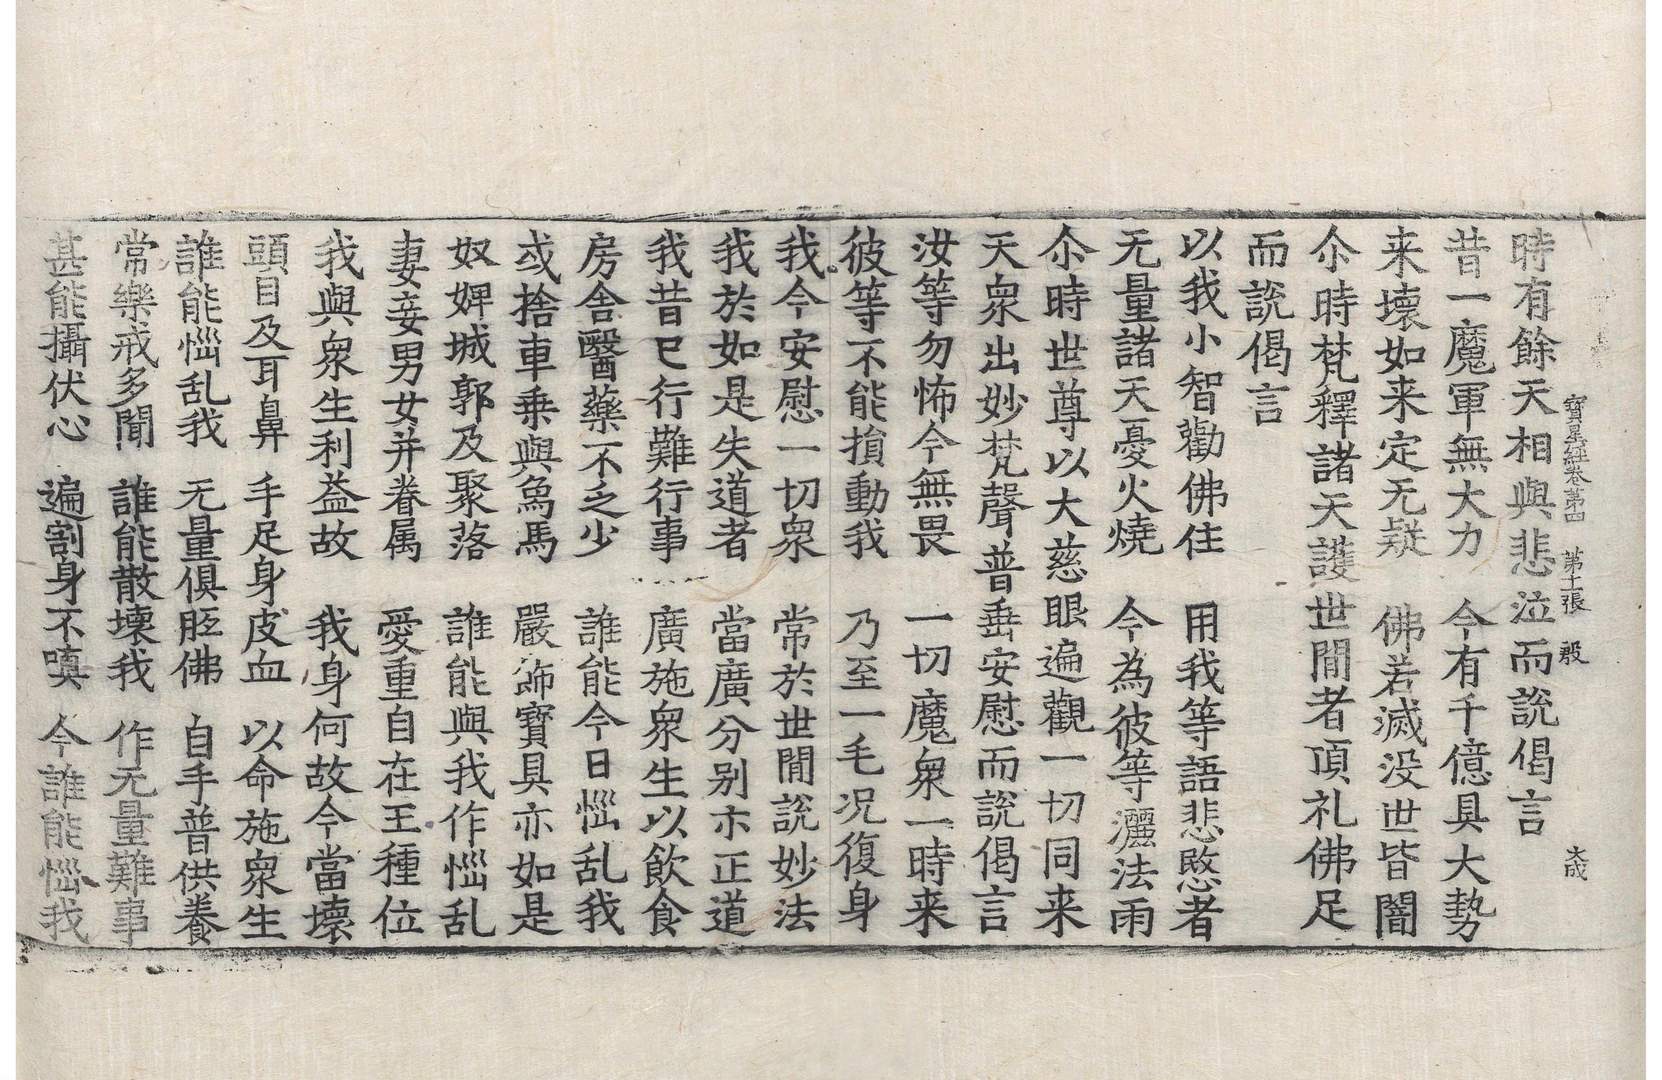 寶星経卷苐四　第十一張　殷　大成
時有餘天相與悲泣而說偈言
昔一魔軍無大力　今有千億具大勢
来壞如来定无疑　佛若滅没世皆闇
尒時梵釋諸天護世閒者頂礼佛足
而說偈言
以我小智勸佛住　用我等語悲愍者
无量諸天憂火燒　今為彼等灑法雨
尒時世尊以大慈眼遍觀一切同来
天衆出妙梵聲普垂安慰而說偈言
汝等勿怖今無畏　一切魔衆一時来
彼等不能損動我　乃至一毛况復身
我今安慰一切衆　常於世閒說妙法
我於如是失道者　當廣分别示正道
我昔已行難行事　廣施衆生以飲食
房舍醫藥不乏少　誰能今日惱乱我
或捨車乗與象馬　嚴飾寶具亦如是
奴婢城郭及聚落　誰能與我作惱乱
妻妾男女并眷属　愛重自在王種位
我與衆生利益故　我身何故今當壞
頭目及耳鼻　手足身皮血　以命施衆生
誰能惱乱我　无量俱胝佛　自手普供養
常樂戒多聞　誰能散壞我　作无量難事
甚能攝伏心　遍割身不嗔　今誰能惱我